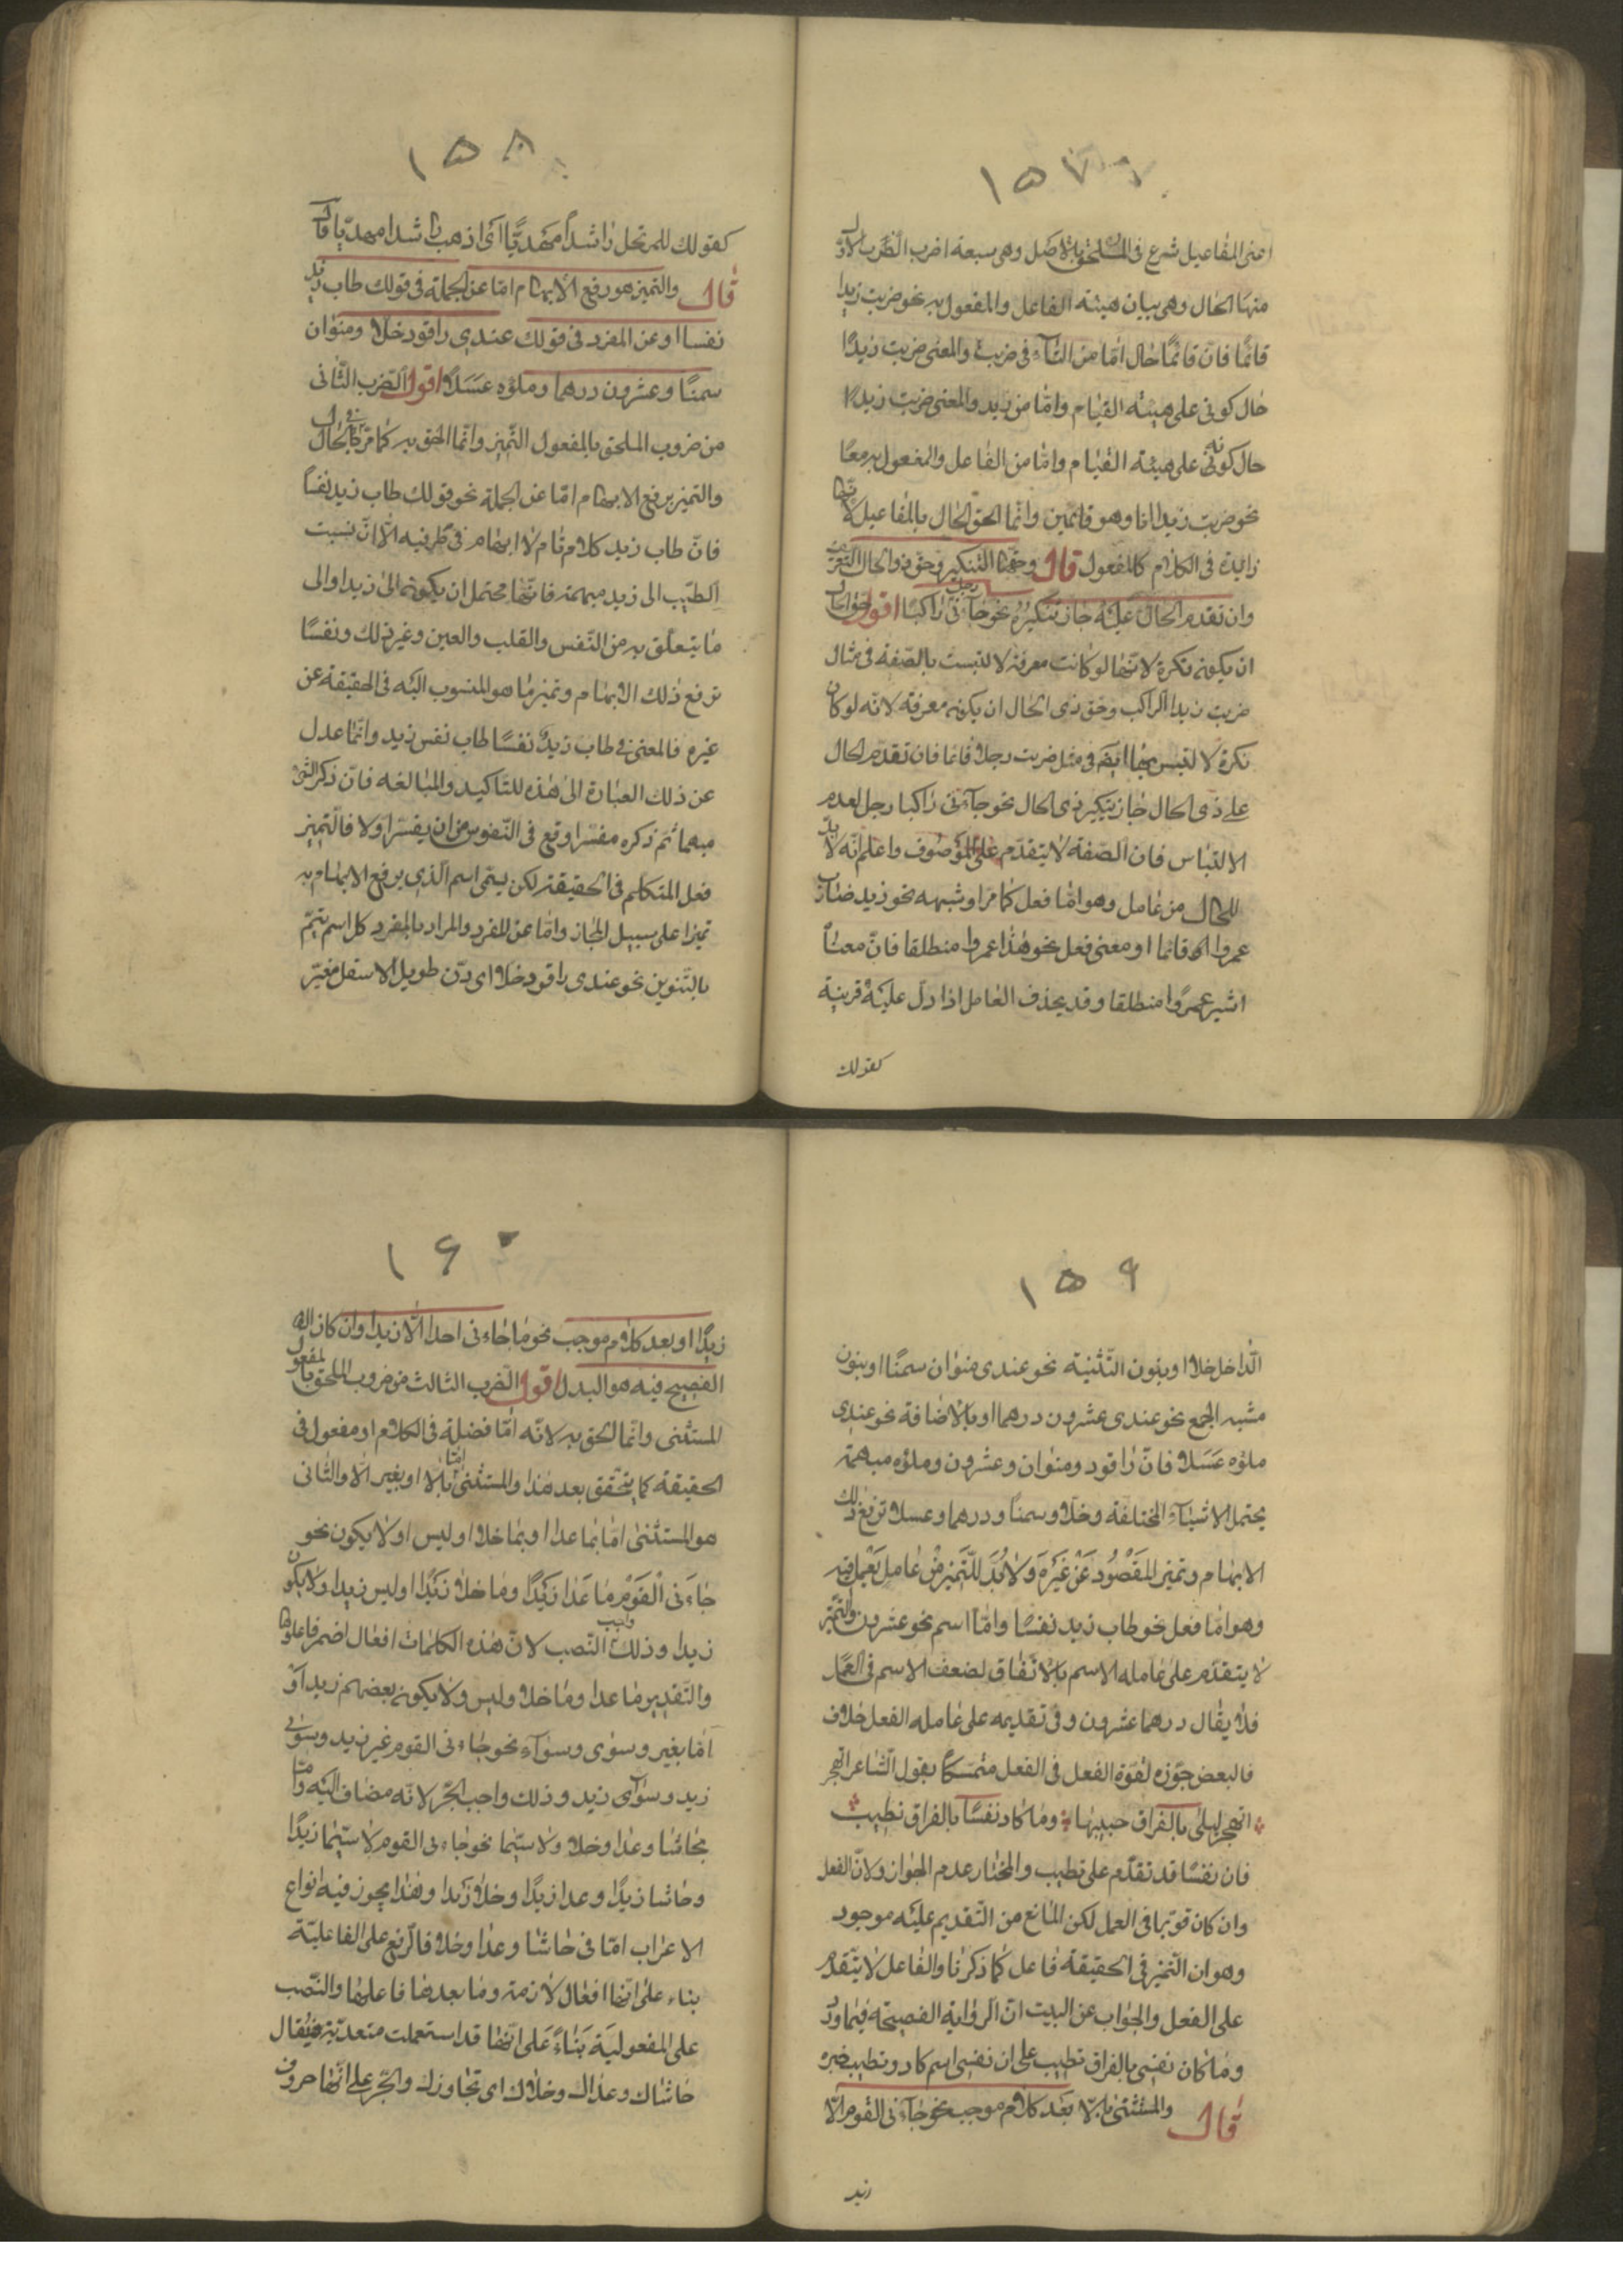 ١٥٧
اعنى المفاعيل شرع فى الملحق بالاصل وهى سبعة اضرب الضّرب الاوّل
منها الحال وهى بيان هيئة الفاعل والمفعول به نحو ضربت زيدا
قائمًا فانّ قائمًا حال امّا من التّاء فى ضربت والمعنى ضربت زيدًا
حال كونى على هيئة القيام وامّا من زيد والمعنى ضربت زيدًا
حال كونه على هيئة القيام وامّا من الفاعل والمفعول به معًا
نحو ضربت زيدا انا وهو قائمين وانّما الحق الحال بالمفاعيل لانّها
زائدة فى الكلام كالمفعول قال وحقّها التّنكير وحق ذى الحال التعريف
وان تقدم الحال عليه جاز تنكيره نحو جاءنى راكبًا رجل اقول حق الحال
ان يكون نكرة لانّها لو كانت معرفة لالتبست بالصّفة فى مثال
ضربت زيدا الراكب وحق ذى الحال ان يكون معرفة لانّه لو كان
نكرة لالتبس بها ايضا فى مثل ضربت رجلا قائما فان تقدم الحال
على ذى الحال جاز تنكير ذى الحال نحو جاءنى راكبا رجل لعدم
الالتباس فان الصّفة لا يتقدّم على الموصوف واعلم انّه لا بدّ
للحال من عامل وهو امّا فعل كما مرّ او شبهه نحو زيد ضارب
عمروا قائما او معنى فعل نحو هذا عمروا منطلقا فانّ معناه
اشير عمروًا منطلقا وقد يحذف العامل اذا دلّ عليه قرينة
كقولك
١٥٨
كقولك للمرتحل راشدًا مهديًّا اى اذهب راشدا مهديّا قال
قال والتميز هو رفع الابهام امّا عن الجملة فى قولك طاب زيد
نفسا او عن المفرد فى قولك عندى راقود خلّا ومنوان
سمنًا وعشرون درهما وملؤه عسلًا اقول الضرب الثّانى
من ضروب الملحق بالمفعول التّميز وانّما الحق به كما مرّ فى الحال
والتميز يرفع الابهام امّا عن الجملة نحو قولك طاب زيد نفسًا
فانّ طاب زيد كلام تام لا ابهام فى طرفيه الّا انّ نسبت
الطّيب الى زيد مبهمة فانّها تحتمل ان يكون الى زيد او الى
ما يتعلّق به من النّفس والقلب والعين وغير ذلك ونفسًا
ترفع ذلك الابهام وتميز ما هو المنسوب اليه فى الحقيقة عن
غيره فالمعنى فى طاب زيدٌ نفسًا طاب نفس زيد وانّما عدل
عن ذلك العبارة الى هذه للتّاكيد والمبالغه فانّ ذكر الشّئ
مبهما ثم ذكره مفسّرا وقع فى النّفوس من ان يفسّر اولا فالتّميز
فعل المتكلم فى الحقيقة لكن يسمّى اسم الّذى يرفع الابهام به
تميزا على سبيل المجاز وامّا عن المفرد والمراد بالمفرد كل اسم يتمّ
بالتّنوين نحو عندى راقود خلّا اى دنّ طويل الاسفل مقيّر
١٥٩
الدّاخل خلا او بنون التّثنية نحو عندى منوان سمنًا او بنون
مشبه الجمع نحو عندى عشرون درهما او بالاضافة نحو عندى
ملؤه عسلا فانّ راقود ومنوان وعشرون وملؤه مبهمة
يحتمل الاشياء المختلفة وخلّا وسمنًا ودرهما وعسلا ترفع ذلك
الابهام وتميز المقصود عن غيره ولا بدّ للتّميز من عامل يعمل فيه
وهو امّا فعل نحو طاب زيد نفسًا وامّا اسم نحو عشرون والتّميز
لا يتقدّم على عامله الاسم بالاتّفاق لضعف الاسم فى العمل
فلا يقال درهما عشرون وفى تقديمه على عامله الفعل خلاف
فالبعض جوّزه لقوّة الفعل فى الفعل متمسّكًا بقول الشّاعر اتهجر
اتهجر ليلى بالفراق حبيبها وما كاد نفسًا بالفراق تطيب
فان نفسًا قد تقدّم على تطيب والمختار عدم الجواز ولانّ الفعل
وان كان قويّا فى العمل لكن المانع من التّقديم عليه موجود
وهو ان التّميز فى الحقيقة فاعل كما ذكرنا والفاعل لا يتقدّم
على الفعل والجواب عن البيت انّ الرّواية الفصيحة
وما كان نفسى بالفراق تطيب على ان نفسى اسم كاد وتطيب خبره
قال والمستثنى بالّا بعد كلام موجب نحو جاءنى القوم الّا
زيد
١٦٠
زيدًا او بعد كلام موجب نحو ما جاءنى احدا الّا زيدا وان كان
الفصيح فيه هو البدل اقول الضرب الثالث من ضروب الملحق بالمفعول
المستثنى وانّما الحق به لانّه امّا فضلة فى الكلام او مفعول فى
الحقيقة كما يتحقّق بعد هذا والمستثنى امّا بالّا او بغير الّا والثّانى
هو المستثنى امّا بما عدا او بما خلا او ليس او لا يكون نحو
جاءنى القوم ما عدا زيدًا وما خلا زيدًا او ليس زيدا ولا يكون
زيدا وذلك واجب النّصب لانّ هذه الكلمات افعال اضمر فاعلوها
والتّقدير ما عدا وما خلا وليس ولا يكون بعضهم زيدا او
امّا بغير وسوى وسواء نحو جاءنى القوم غير زيد وسوى
زيد وسواء زيد وذلك واجب الجّر لانّه مضاف اليه وامّا
بحاشا وعدا وخلا ولا سيّما نحو جاءنى القوم لا سيّما زيدًا
وحاشا زيدًا وعدا زيدًا وخلا زيدا وهذا يجوز فيه انواع
الاعراب امّا فى حاشا وعدا وخلا فالرّفع على الفاعليّة
بناء على انّها افعال لازمة وما بعدها فاعلها والنّصب
على المفعوليّة بناءً على انّها قد استعملت متعدّية فيقال
حاشاك وعداك وخلاك اى تجاوزك والجّر على انّها حروف